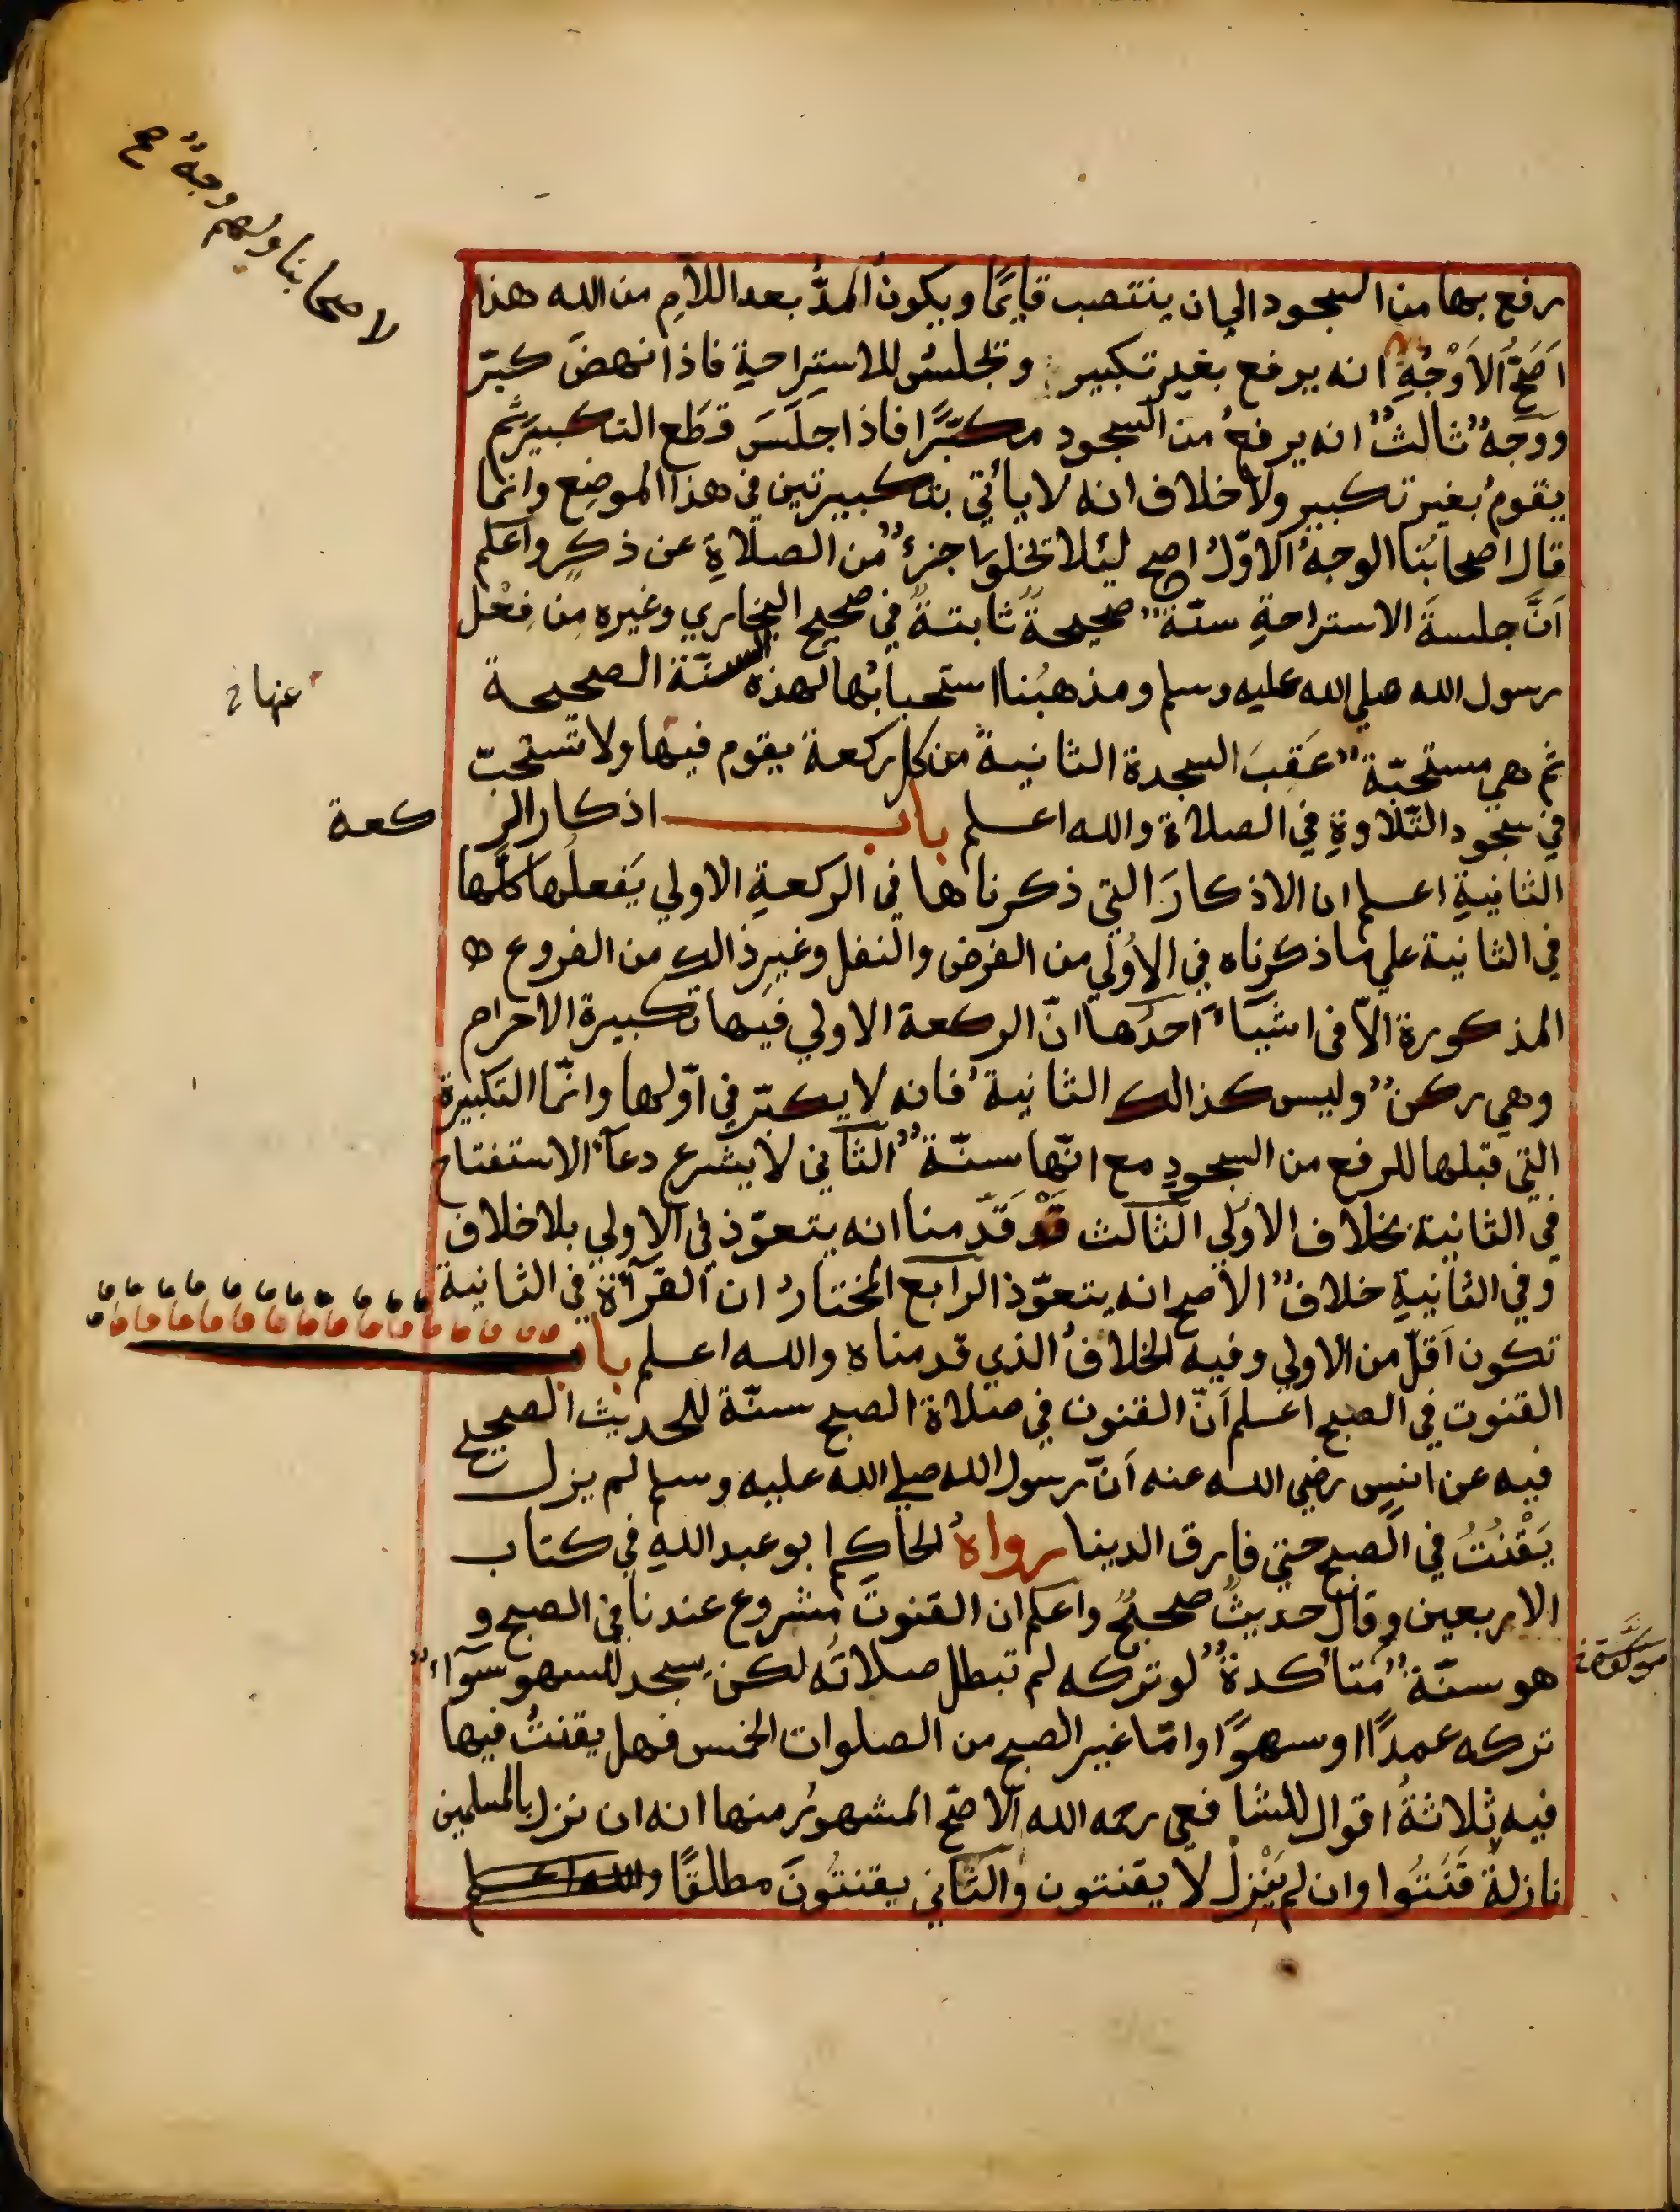 لاصحابنا ولهم وجه صح
رفع بها من السجود الي ان ينتصب قايمًا ويكونُ المدُّ بعد اللامِ من الله هذا
اَصَحُّ الاَوْجُهِ انه يرفع بغير تكبير وتجلسُ للاستِراحةِ فاذا نهضَ كبّر
ووَجهٌ ثالثٌ انه يرفعُ من السجود مكبّرًا فاذا جلَسَ قطَع التكبيرَ ثم
يقومُ بغير تكبير ولا خلاف انه لا يأتي بتكبيرتين في هذا الموضِع وانما
قال اصحابُنا الوجهُ الاوّلُ اصح ليُلا تخلوا جزءٌ من الصلاةِ عن ذكرٍ واعلم
اَنَّ جلسةَ الاستراحةِ سنّةٌ صحيحةٌ ثابتةٌ في صحيح البخاري وغيره مِن فِعْل
رسول الله صلي الله عليه وسلم ومذهبُنا استحبابُها لهذه السنّة الصحيحة
ثم هي مستحبّةٌ عَقِبَ السجدة الثانية من كل ركعة يقوم فيها ولا تستحبّ
عنها
في سجود التّلاوةِ في الصلاة والله اعلم باب اذكار الركعة
الثانيةِ اعلم ان الاذكارَ التي ذكرناها في الركعةِ الاولي يَفعلُها كلَّها
في الثانية علي ما ذكرناه في الاُولي من الفرض والنفل وغيرِ ذالك من الفروع
المذكورة الاّ في اشيَآءَ احدُها انّ الركعة الاولي فيها تكبيرة الاحرام
وهي ركنٌ وليس كذالك الثانيةُ فانه لا يكبّر في اوّلها وانّما التكبيرة
التي قبلها للرفع من السجودِ مع انّها سنّةٌ الثاني لا يشرع دعآءُ الاستفتاح
في الثانية بخلاف الاولي الثالث قَدْ قَدّمنا انه يتعوّذ في الاولي بلا خلاف
وفي الثانيةِ خلافٌ الاصح انه يتعوّذ الرابع المختارُ ان القرآةَ في الثانية
تكون اَقلّ من الاولي وفيه الخلافُ الذي قدمناه والله اعلم باب
القنوت في الصبح اعلم اَنّ القنوت في صلاة الصبح سنّة للحديث الصحيح
فيه عن انسٍ رضي الله عنه اَنّ رسول الله صلي الله عليه وسلم لم يزل
يَقْنُتُ في الصبح حتي فارق الدينا رواهُ الحاكم ابو عبد اللهِ في كتاب
الاربعين وقال حديثٌ صحيحٌ واعلم ان القنوتَ مشروع عندنا في الصبح و
هو سنّةٌ متأكدةٌ لو تركه لم تبطل صلاتُه لكن يسجد للسهو سوآءٌ
موكدة
تركه عمدًا او سهوًا وامّا غير الصبح من الصلوات الخمس فهل يقنتُ فيها
فيه ثلاثةُ اقوال للشافعي رحمه الله الاصَحّ المشهورُ منها انه ان نزل بالمسلمين
نازلةٌ قَنَتُوا وان لم يَنْزِلْ لا يقنتون والثاني يقنتُونَ مطلقًا والله اعلم